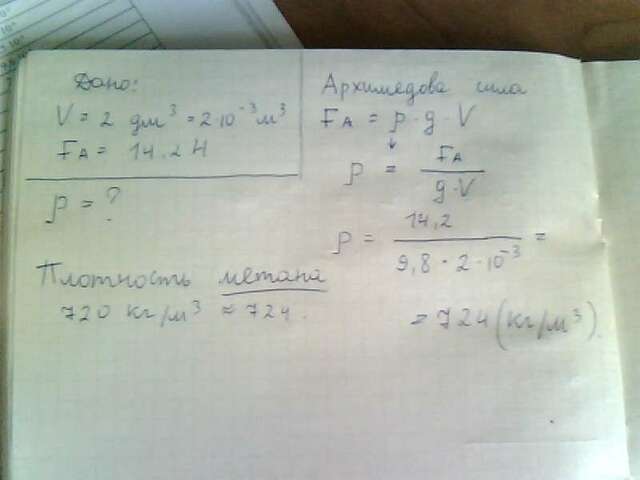 Дано:
V = 2 дм³ = 2·10⁻³ м³
FА = 14.2 Н
ρ = ?
Плотность метана
720 кг/м³ ≈ 724.
Архимедова сила
FА = ρ·g·V
↓
ρ = FА / g·V
ρ = 14,2 / 9,8·2·10⁻³ =
= 724 (кг/м³).